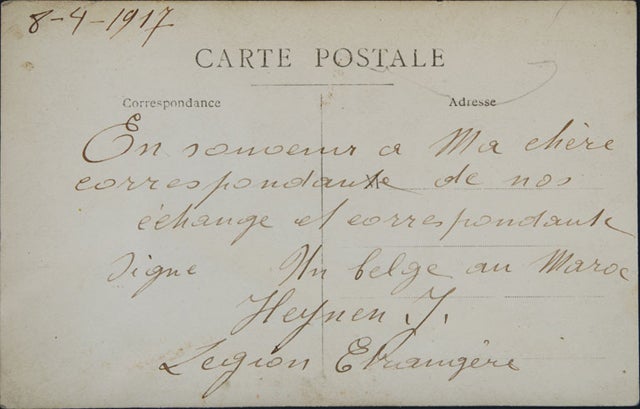 8-4-1917
CARTE POSTALE
Correspondance
Adresse
En souvenir a Ma chère
correspondante de nos
échange et correspondante
Signe Un belge au Maroc
Heynen J.
Legion Etrangère